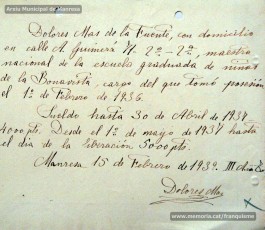 Arxiu Municipal de Manresa
Dolores Mas de la Fuente, con domicilio
en calle A. Guimerá 2º-2ª, maestra
nacional de la escuela graduada de niñas
de la Bonavista, cargo del que tomó posesión
el 1º de Febrero de 1936.
Sueldo hasta 30 de Abril de 1937
4000 pts. Desde el 1º de mayo de 1937 hasta
el día de la liberación 5000 pts.
Manresa 15 de Febrero de 1939.
Dolores Mas
www.memoria.cat/franquisme